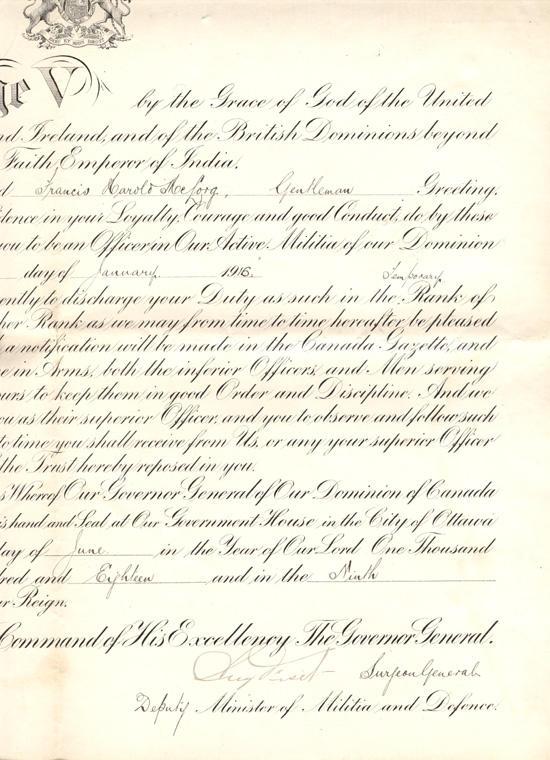 ge V by the Grace of God of the United
nd, Ireland, and of the British Dominions beyond
Faith, Emperor of India.
d Francis Harold Gentleman Greeting.
dence in your Loyalty, Courage and good Conduct, do by these
you to be an Officer in Our Active Militia of our Dominion
day of January 1916. Temporary
ently to discharge your Duty as such in the Rank of
her Rank as we may from time to time hereafter be pleased
a notification will be made in the Canada Gazette, and
e in Arms, both the inferior Officers and Men serving
ours to keep them in good Order and Discipline. And we
you as their superior Officer, and you to observe and follow such
to time you shall receive from Us, or any your superior Officer
the Trust hereby reposed in you.
s Whereof Our Governor General of Our Dominion of Canada
is hand and Seal at Our Government House in the City of Ottawa
day of June in the Year of Our Lord One Thousand
dred and Eighteen and in the Ninth
ur Reign.
Command of His Excellency The Governor General.
Surgeon General
Deputy Minister of Militia and Defence.